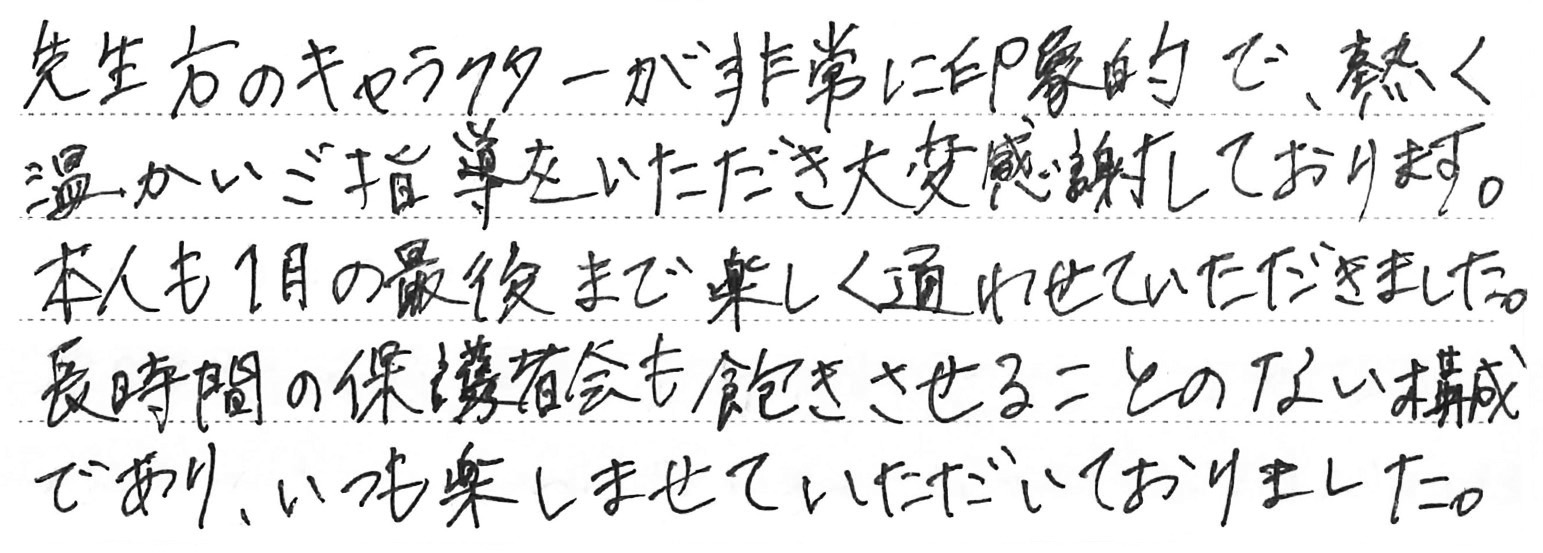 先生方のキャラクターが非常に印象的で、熱く
温かいご指導をいただき大変感謝しております。
本人も1月の最後まで楽しく通わせていただきました。
長時間の保護者会も飽きさせることのない構成
であり、いつも楽しませていただいておりました。